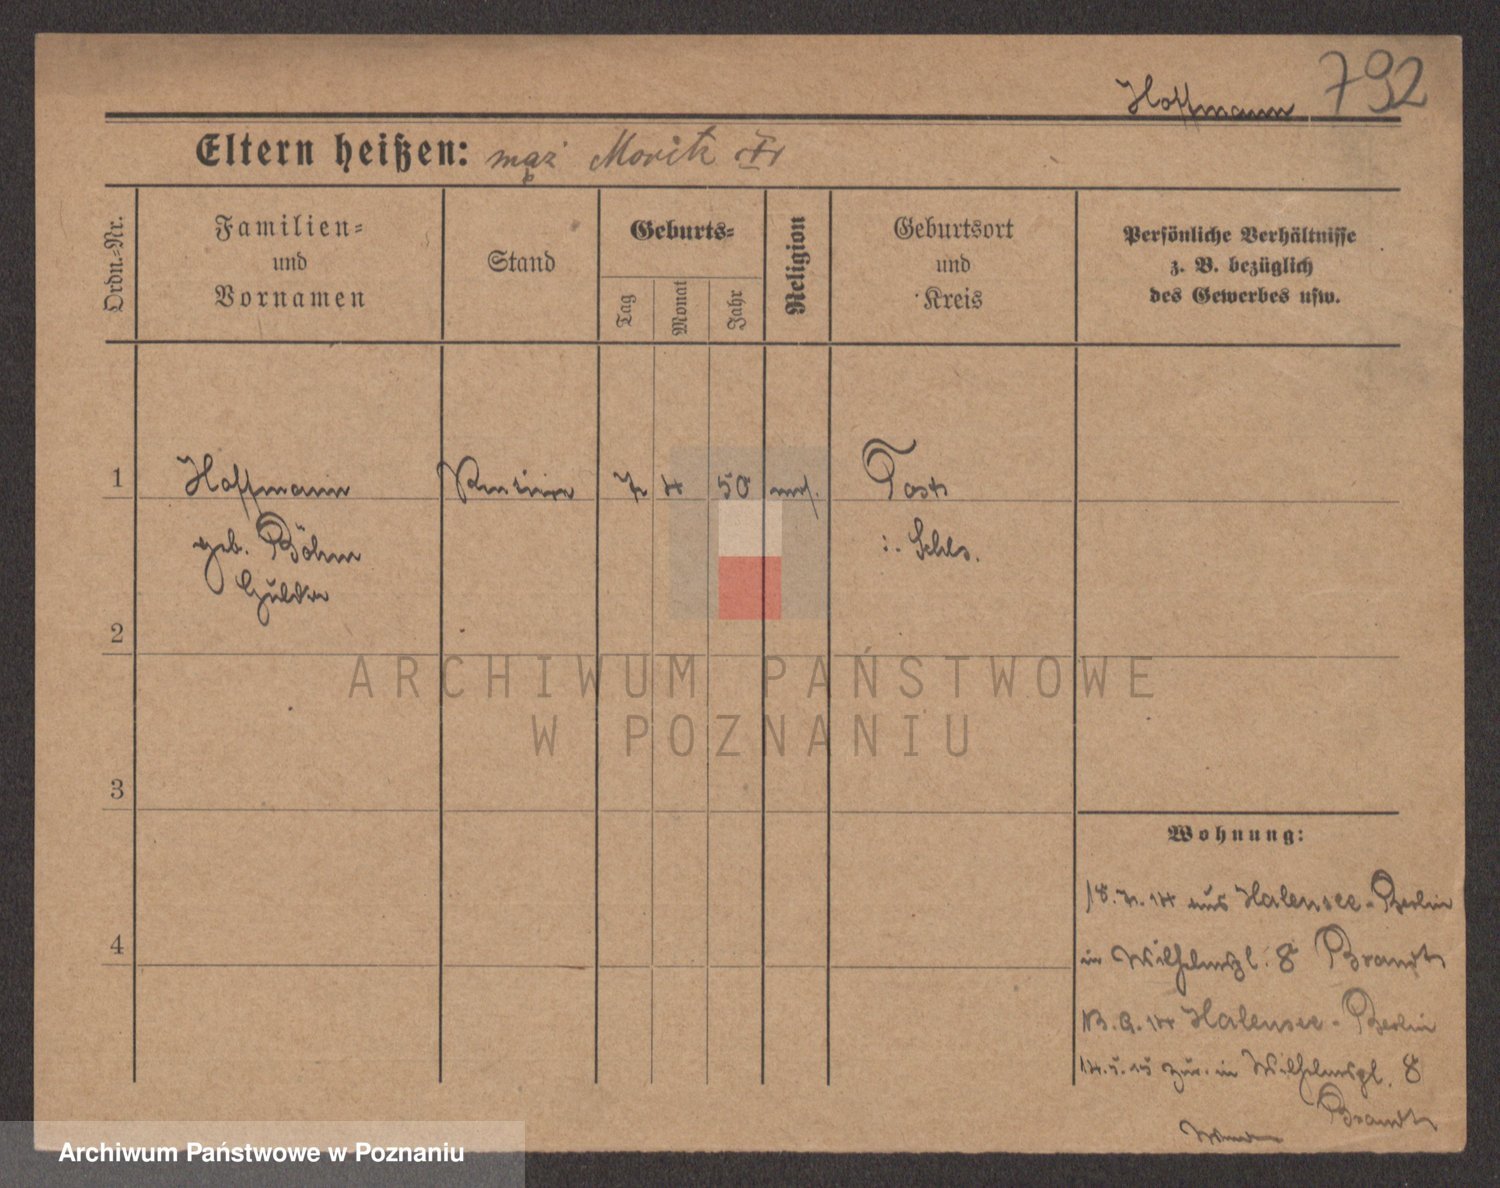 Hoffmann 792
Eltern heißen: mąż Moritz
Ordn.-Nr.
Familien-
und
Vornamen
Stand
Geburts-
Tag
Monat
Jahr
Religion
Geburtsort
und
Kreis
Persönliche Verhältnisse
z. B. bezüglich
des Gewerbes usw.
1 Hoffmann 4 50 mos. Tost
geb. Böhm i. Schles.
Hulda
2
3
4
Wohnung:
aus Halensee-Berlin
in Wilhelmspl. 8 Brandt
Halensee-Berlin
zur. in Wilhelmspl. 8
Brandt
ARCHIWUM PAŃSTWOWE
W POZNANIU
Archiwum Państwowe w Poznaniu